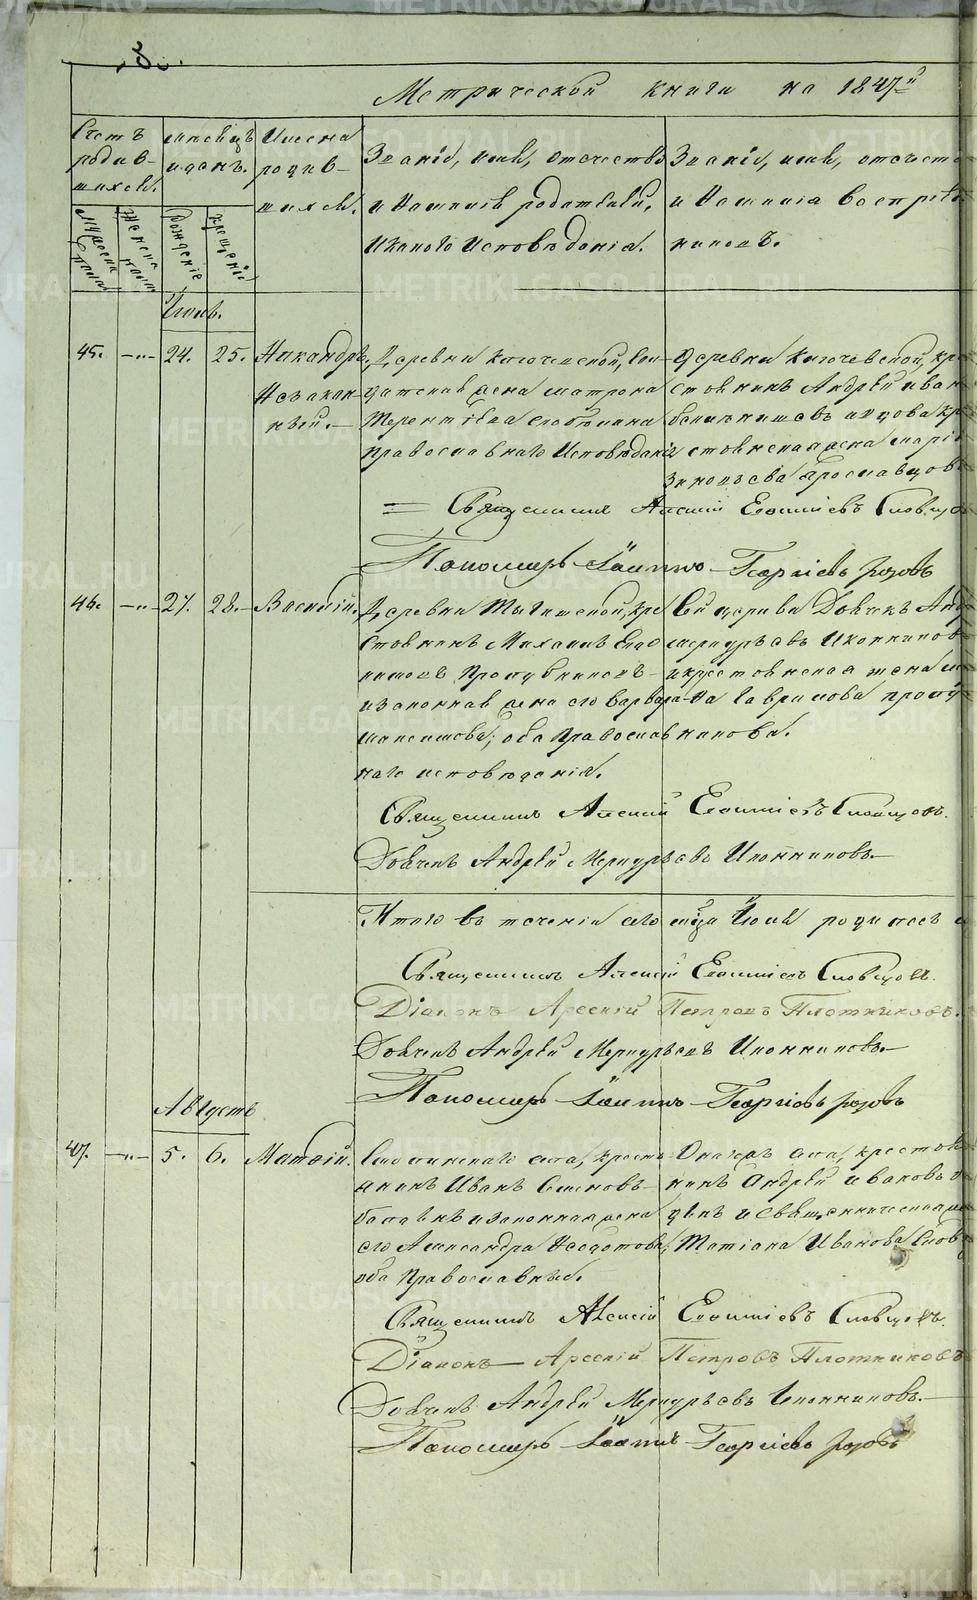 Метрической книги на 1847й
Счетъ родив-шихся.
Мужеска пола
Женска пола
Месяцъ и день.
Рожденiе
Крещенiе
Имена родив-шихся.
Званiе, имя, отечество
и Фамилiя родителей,
и какого исповѣданiя.
Званiе, имя, отечество
и Фамилiя воспрiе-
никовъ.
Iюль.
45. —„— 24. 25.
Никандръ,
Незакон-
ный.—
Деревни Ключевской, Сол-
датская жена Матрона
Терентiева
Православнаго Исповѣданiя
Деревни Ключевской, кре
стьянинъ Андрей Иван
стьянская жена Марiя
Зиновьева Ярославцов
Священникъ Алексiй Евфимiевъ Словцов
Пономарь Iоаннъ Георгiевъ Розовъ
46. —„— 27. 28.
Василiй.
стьянинъ Михаилъ
и законная жена его Варвара
Максимова; оба Православ
наго исповѣданiя.
Сей церкви Дьячекъ Анд
Меркурьевъ Иконников
и крестьянская жена
Гаврилова
Священникъ Алексiй Евфимiевъ Словцовъ.
Дьячекъ Андрей Меркурьевъ Иконниковъ.—
Итого въ теченiи сего мѣсяца Iюля родилось
Священникъ Алексiй Евфимiевъ Словцовъ.
Дiаконъ Арсенiй Петровъ Плотниковъ.
Дьячекъ Андрей Меркурьевъ Иконниковъ.—
Пономарь Iоаннъ Георгiевъ Розовъ
Августъ
47. —„— 5. 6.
Матѳiй.
села, кресть-
янинъ Иванъ Семеновъ
и законная жена
его Александра Ѳедотова,
оба Православныя.
села, крестья
нинъ Андрей Ивановъ
и священническая
Татiана Иванова Слов
Священникъ Алексiй Евфимiевъ Словцовъ.
Дiаконъ Арсенiй Петровъ Плотниковъ
Дьячекъ Андрей Меркурьевъ Иконниковъ.—
Пономарь Iоаннъ Георгiевъ Розовъ
METRIKI.GASO-URAL.RU